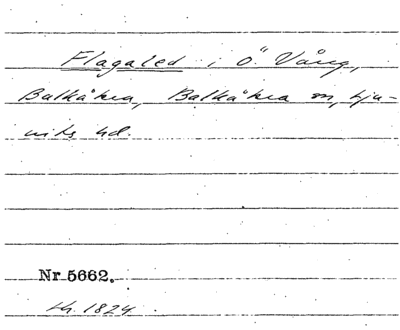 Flagaled i Ö. Vång,
Balkåkra, Balkåkra sn, Lju-
nits hd.
Nr 5662.
LM. 1824